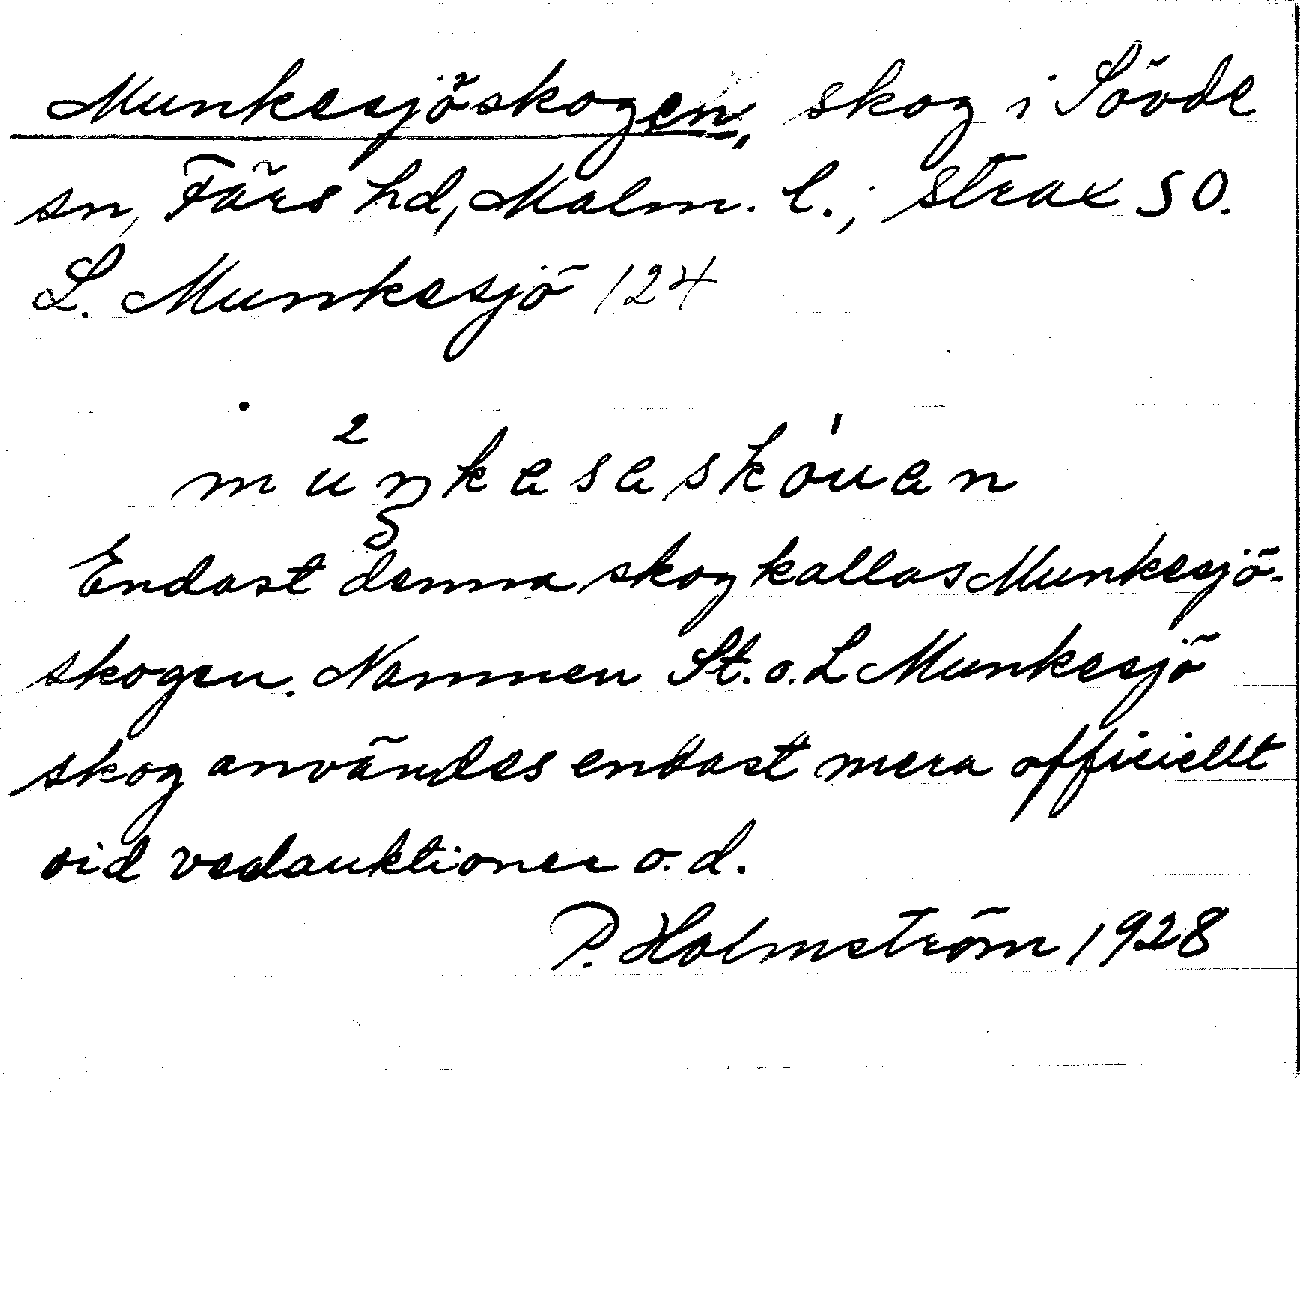 Munkesjöskogen, skog i Sövde
sn, Färs hd, Malm. l.; strax SO.
L. Munkesjö 124
Endast denna skog kallas Munkesjö-
skogen. Namnen St. o. L Munkesjö
skog användes endast mera officiellt
vid vedauktioner o. d.
P. Holmström 1928